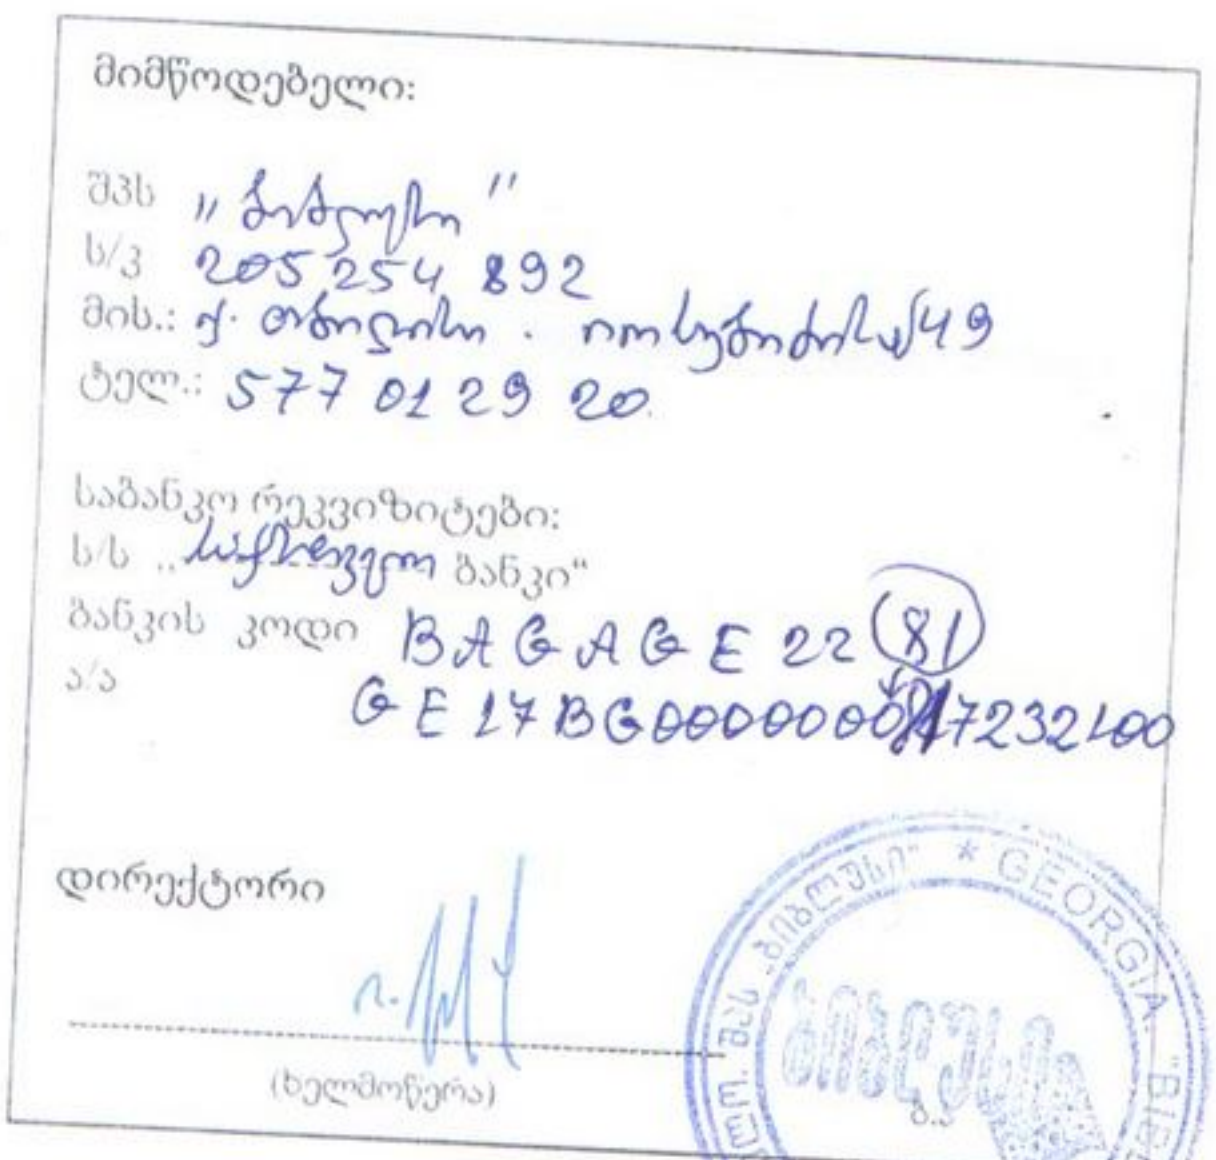 მიმწოდებელი:
შპს „ბიბლუსი"
ს/კ 205 254 892
მის.: ქ. თბილისი. იოსებიძის 49
ტელ.: 577 01 29 20
საბანკო რეკვიზიტები:
ს/ს „საქართველო ბანკი“
ბანკის კოდი BAGAGE 22 81
ა/ა GE17BG0000000 17232100
დირექტორი
(ხელმოწერა)
შპს „ბიბლუსი" * GEORGIA "BIB
ბიბლუსი
ბ.ა